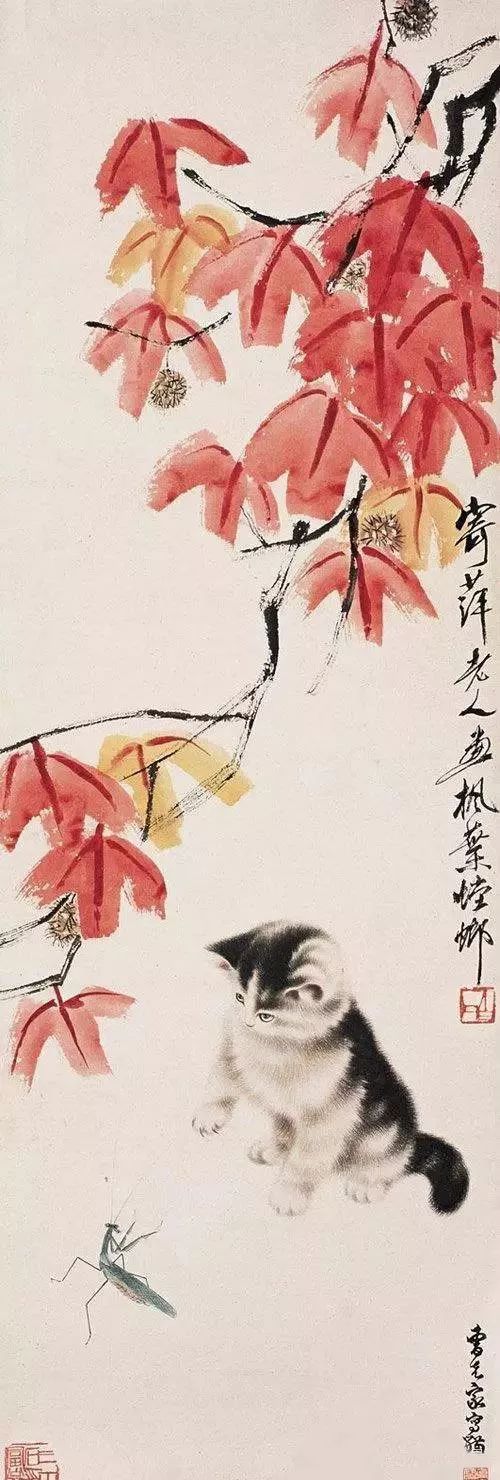 寄萍老人画枫叶螳螂
曹克家写猫